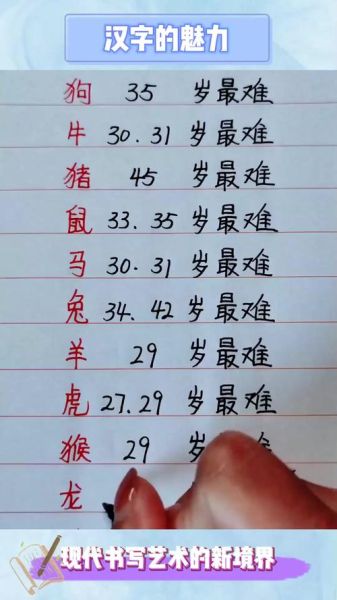 汉字的魅力
狗 35 岁最难
牛 30.31 岁最难
猪 45 岁最难
鼠 33.35 岁最难
马 30.31 岁最难
兔 34.42 岁最难
羊 29 岁最难
虎 27.29 岁最难
猴 29 岁 难
龙
现代书写艺术的新境界